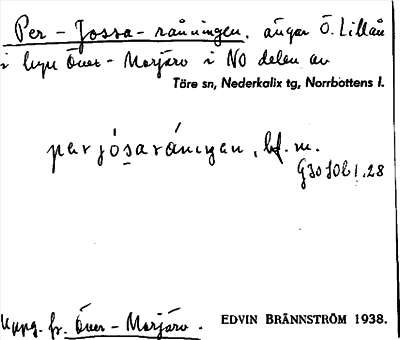 Per-Jossa-rånningen, ängar Ö. Lillån
i byn Över-Morjärv i NO delen av
Töre sn, Nederkalix tg, Norrbottens l.
perjósaråningen, bf. m.
Uppg. fr. Över-Morjärv.
EDVIN BRÄNNSTRÖM 1938.